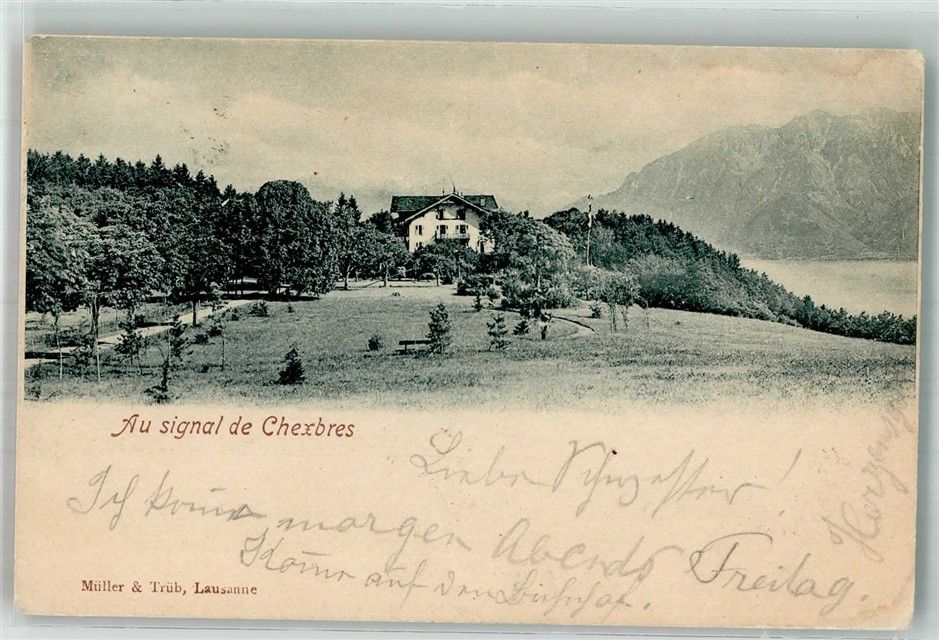 Au signal de Chexbres
Liebe Schwester!
Ich kom̄e morgen Abends Freitag.
Kom̄ auf den Bahnhof.
Müller & Trüb, Lausanne